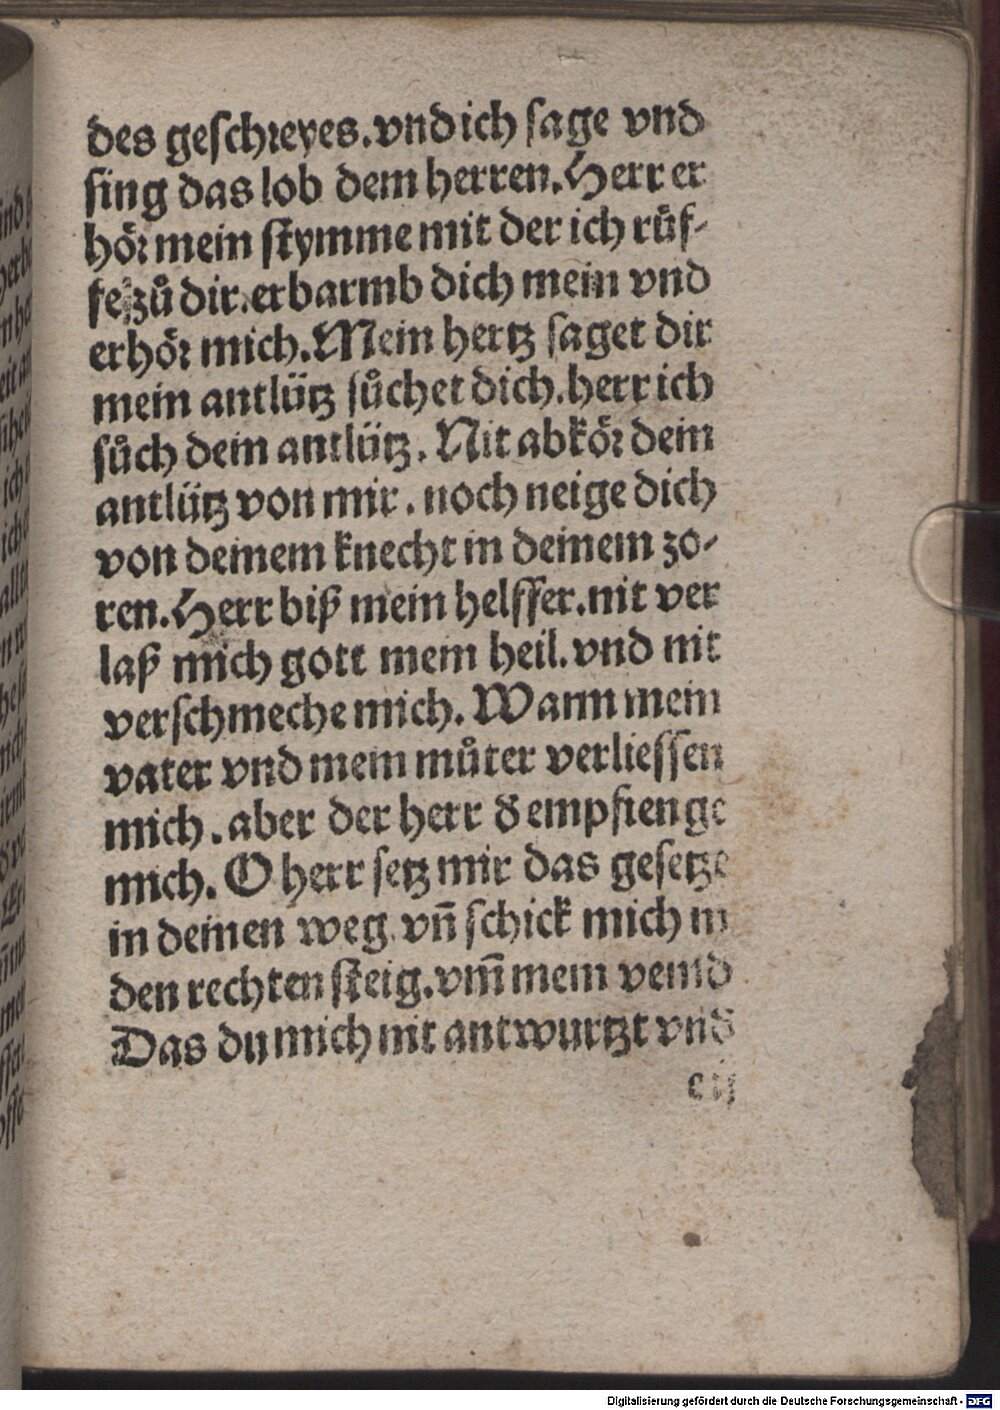 des geſchꝛeyes. vnd ich ſage vnd
ſing das lob dem herren. Herr er
hoͤꝛ mein ſtymme mit der ich ruͤf-
fe zuͦ dir. erbarmb dich mein vnd
erhoͤꝛ mich. Mein hertz ſaget dir
mein antlütz ſuͦchet dich. herr ich
ſuͦch dein antlütz. Nit abkoͤꝛ dein
antlütz von mir. noch neige dich
von deinem knecht in deinem zo-
ren. Herr biß mein helffer. nit ver
laß mich gott mein heil. vnd nit
verſchmeche mich. Wann mein
vater vnd mein muͦter verlieſſen
mich. aber der herr đ empfienge
mich. O herr ſetz mir das geſetze
in deinen weg. vn̄ ſchick mich in
den rechten ſteig. vm̄ mein veind
Das du mich nit antwurtzt vnd
e ij
Digitalisierung gefördert durch die Deutsche Forschungsgemeinschaft - DFG